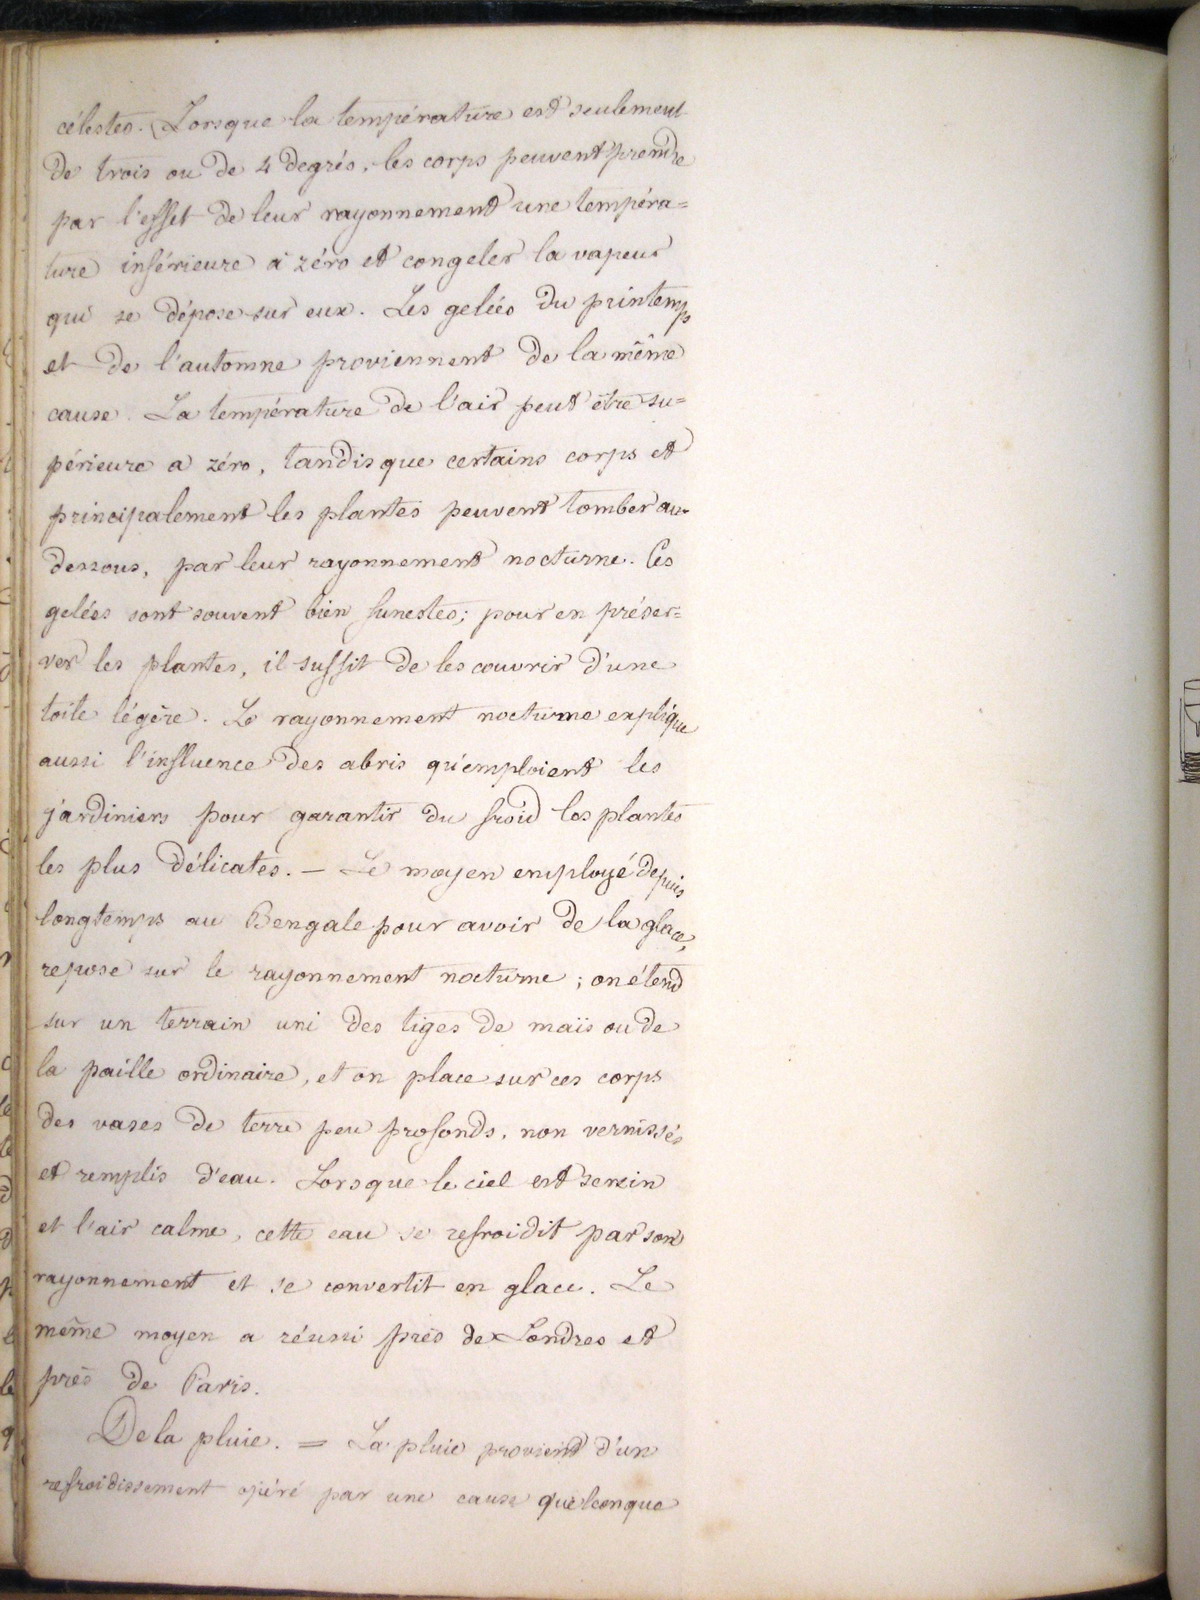 célestes. Lorsque la température est seulement
de trois ou de 4 degrés, les corps peuvent prendre
par l'effet de leur rayonnement une tempéra=
ture inférieure à zéro et congeler la vapeur
qui se dépose sur eux. Les gelées du printemps
et de l'automne proviennent de la même
cause. La température de l'air peut être su=
périeure a zéro, tandis que certains corps et
principalement les plantes peuvent tomber au-
dessous, par leur rayonnement nocturne. Ces
gelées sont souvent bien funestes; pour en préser=
ver les plantes, il suffit de les couvrir d'une
toile légère. Le rayonnement nocturne explique
aussi l'influence des abris qu'emploient les
jardiniers pour garantir du froid les plantes
les plus délicates. — Le moyen employé depuis
longtemps au Bengale pour avoir de la glace,
repose sur le rayonnement nocturne ; on étend
sur un terrain uni des tiges de maïs ou de
la paille ordinaire, et on place sur ces corps
des vases de terre peu profonds, non vernissés
et remplis d'eau. Lorsque le ciel est serein
et l'air calme, cette eau se refroidit par son
rayonnement et se convertit en glace. Le
même moyen a réussi près de Londres et
près de Paris.
De la pluie. = La pluie provient d'un
refroidissement opéré par une cause quelconque